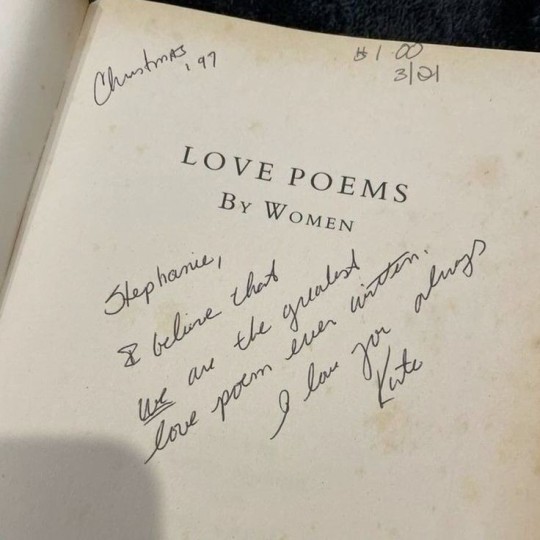 Christmas, '97
$1.00
3/21
LOVE POEMS
BY WOMEN
Stephanie,
I believe that
We are the greatest
love poem ever written.
I love you always
Kate